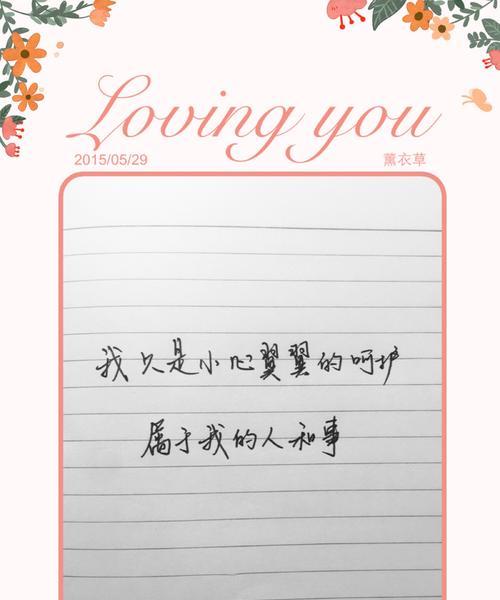 Loving you
2015/05/29 薰衣草
我只是小心翼翼的呵护
属于我的人和事